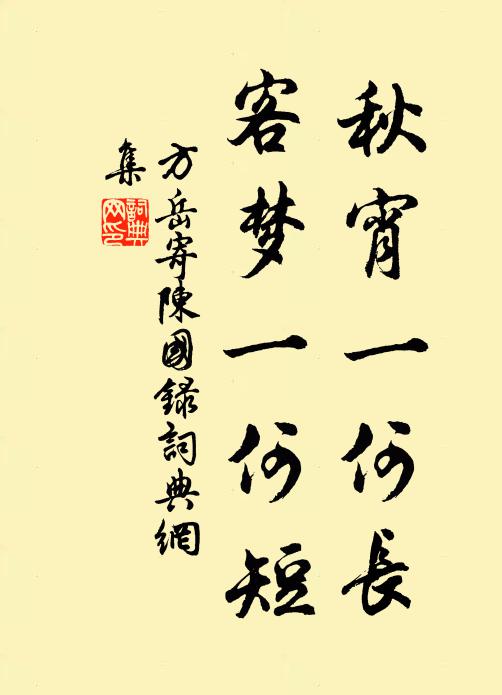 秋宵一何長
客梦一何短
方岳寄陳國録詞典網
集
詞典
网印